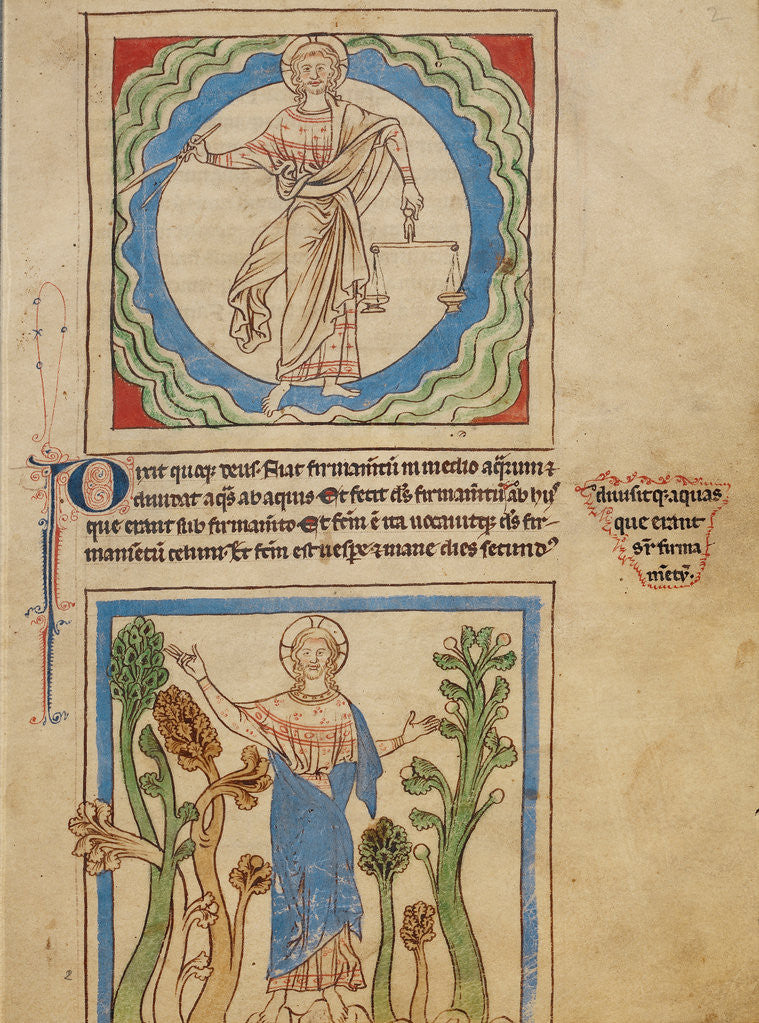 2
Dixit quoqꝫ deus. Fiat firmam̅tu̅ in medio aq̅rum ⁊
diuidat aq̅s ab aquis Et fecit d̅s firmam̅tu̅ ab hiis
que erant sub firmam̅to Et fc̅m e̅ ita uocauitqꝫ d̅s fir-
mam̅etu̅ celum. Et fc̅m est uesp̅e ⁊ mane dies secundꝰ
diuisitqꝫ aquas
que erant
sr̅ firma
m̅etu̅.
2